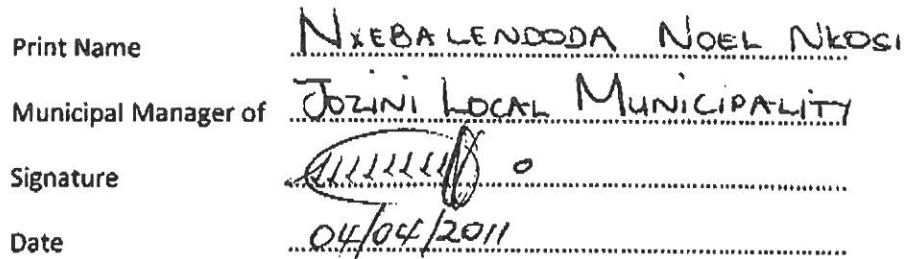 Print Name NXEBALENDODA NOEL NKOSI
Municipal Manager of JOZINI LOCAL MUNICIPALITY
Signature
Date 04/04/2011